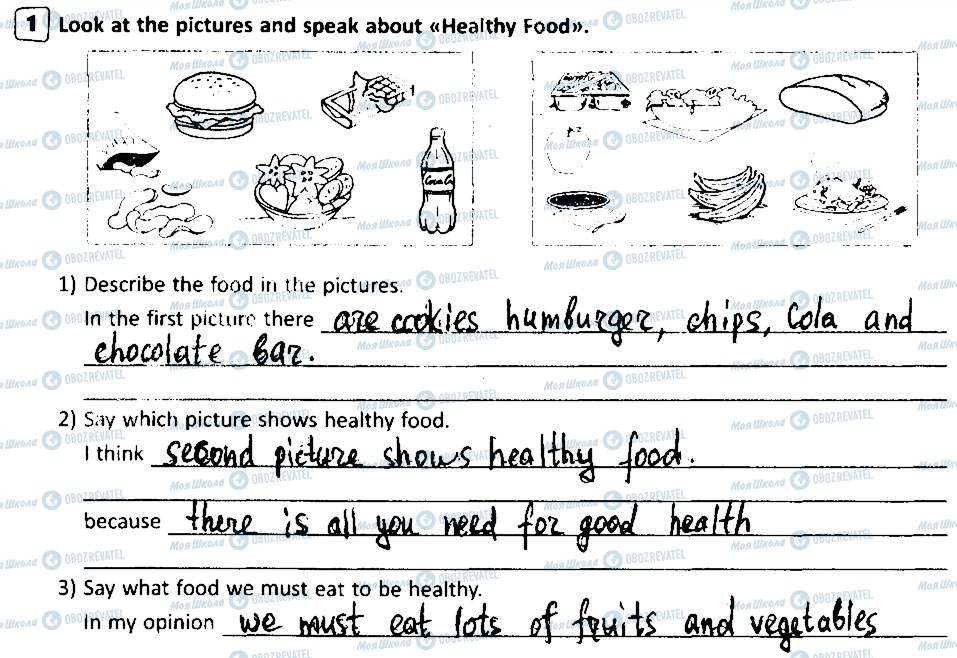 1 Look at the pictures and speak about «Healthy Food».
Coca Co
1) Describe the food in the pictures.
In the first picture there are cookies humburger, chips, Cola and
chocolate bar.
2) Say which picture shows healthy food.
I think second picture shows healthy food.
because there is all you need for good health
3) Say what food we must eat to be healthy.
In my opinion we must eat lots of fruits and vegetables
МояШкола OBOZREVATEL